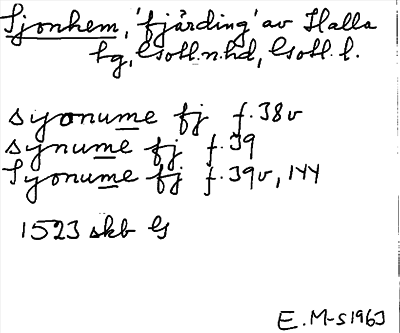 Sjonhem, 'fjärding' av Halla
tg, Gotl.n.hd, Gotl. l.
syonume fj f.38v
synume fj f.39
Syonume fj f.39v, 144
1523 skb G
E. M-s 1963